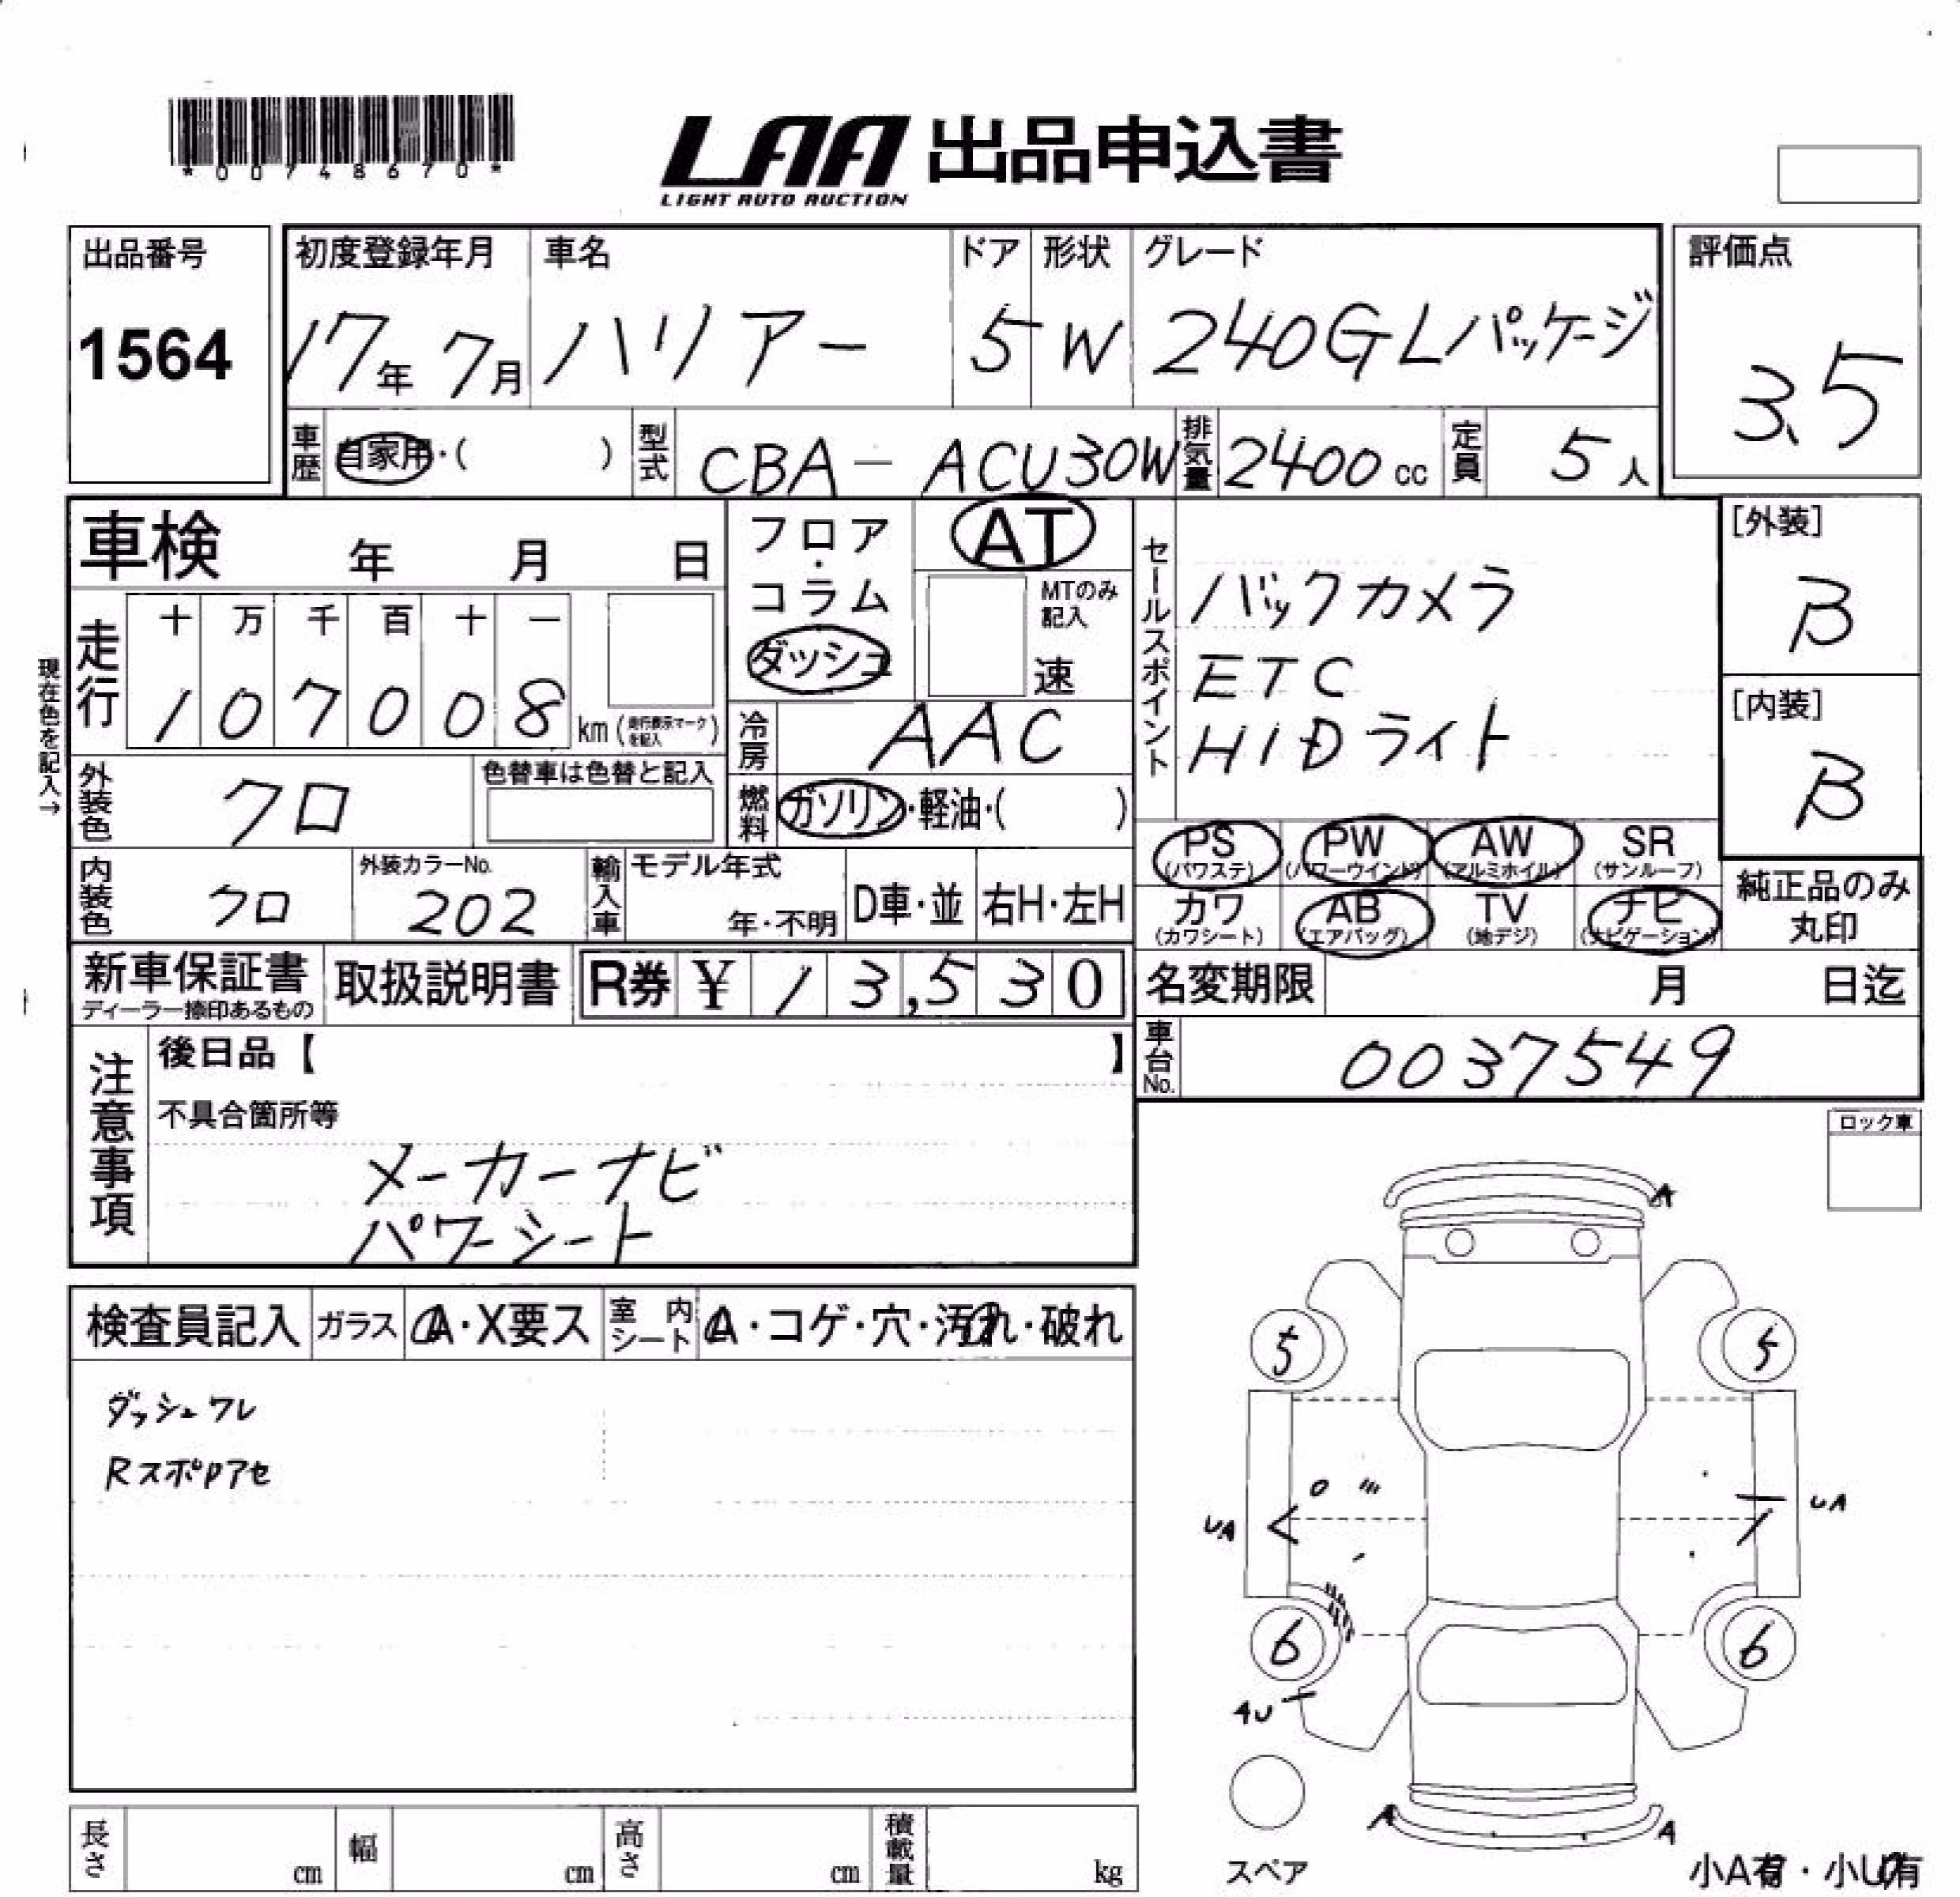 *00748670*
LAA 出品申込書
LIGHT AUTO AUCTION
出品番号
1564
初度登録年月
17年 7月
車名
ハリアー
ドア
5
形状
W
グレード
240G Lパッケージ
評価点
3.5
車歴 自家用・( )
型式 CBA-ACU30W
排気量 2400cc
定員 5人
車検 年 月 日
走行
十 万 千 百 十 一
1 0 7 0 0 8 km(走行表示マークを記入)
現在色を記入→
フロア・コラム
ダッシュ
AT
MTのみ記入
速
冷房 AAC
燃料 ガソリン・軽油・( )
セールスポイント
バックカメラ
ETC
HIDライト
[外装]
B
[内装]
B
外装色 クロ
色替車は色替と記入
内装色 クロ
外装カラーNo.
202
輸入車
モデル年式
年・不明
D車・並
右H・左H
PS PW AW SR
(パワステ) (パワーウインド) (アルミホイル) (サンルーフ)
カワ AB TV ナビ
(カワシート) (エアバッグ) (地デジ) (ナビゲーション)
純正品のみ
丸印
新車保証書
ディーラー捺印あるもの
取扱説明書
R券 ¥ 13,530
名変期限 月 日迄
車台No. 0037549
注意事項
後日品【 】
不具合箇所等
メーカーナビ
パワーシート
ロック車
検査員記入
ガラス A・X要ス
室内シート A・コゲ・穴・汚れ・破れ
ダッシュワレ
Rスポロアセ
A
5 5
UA UA
6 6
AU
A A
スペア
小A有・小U有
長さ cm
幅 cm
高さ cm
積載量 kg